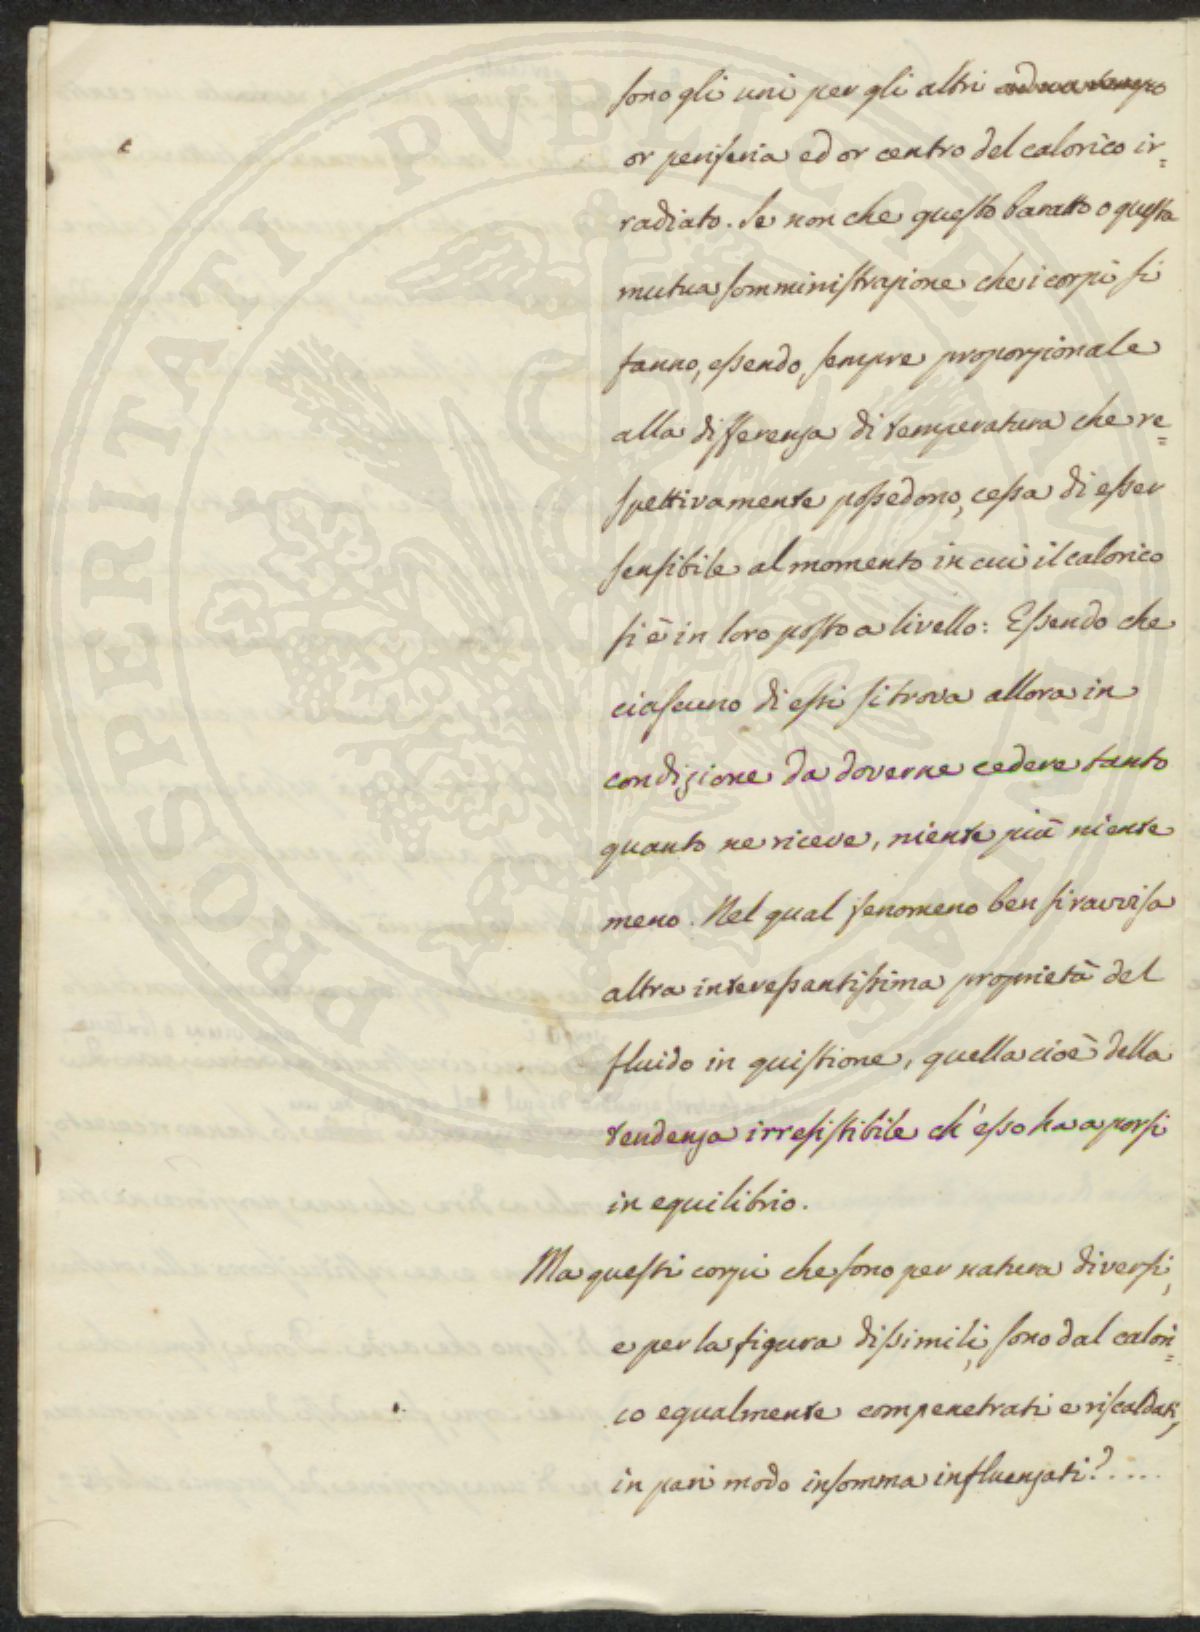 sono gli uni per gli altri
or periferia ed or centro del calorico ir=
radiato. Se non che questo baratto o questa
mutua somministrazione che i corpi si
fanno, essendo sempre proporzionale
alla differenza di temperatura che re=
spettivamente possedono, cessa di esser
sensibile al momento in cui il calorico
si è in loro posto a livello: Essendo che
ciascuno di essi si trova allora in
condizione da doverne cedere tanto
quanto ne riceve, niente più niente
meno. Nel qual fenomeno ben si ravvisa
altra interessantissima proprietà del
fluido in quistione, quella cioè della
tendenza irresistibile ch'esso ha a porsi
in equilibrio.
Ma questi corpi che sono per natura diversi,
e per la figura dissimili, sono dal calori=
co egualmente compenetrati e riscaldati,
in pari modo insomma influenzati?....
PROSPERITATI PVBLICAE